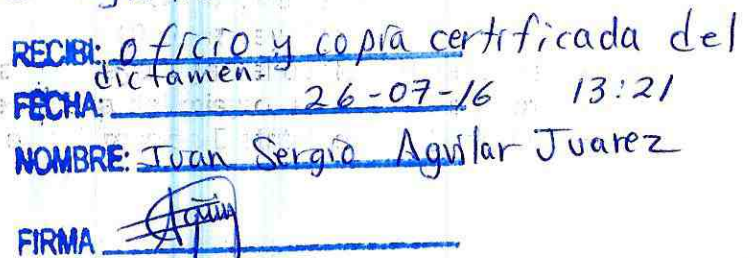 RECIBI: oficio y copia certificada del
dictamen.
FECHA: 26-07-16 13:21
NOMBRE: Juan Sergio Aguilar Juarez
FIRMA